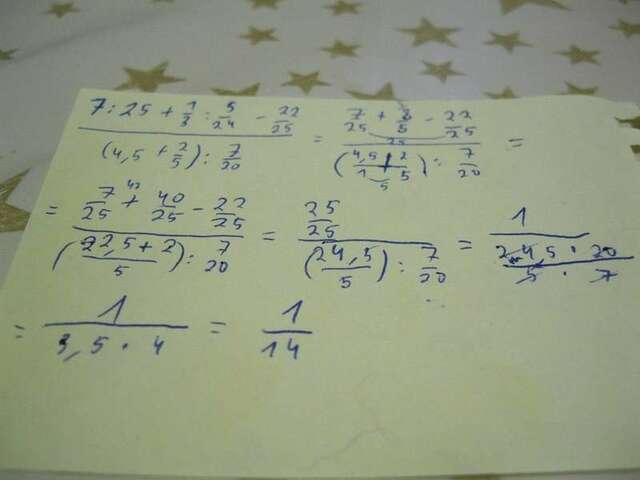 7 : 25 + 1/3 : 5/24 - 22/25 / (4,5 + 2/5) : 7/20 = 7/25 + 8/5 - 22/25 / (4,5/1 + 2/5) : 7/20 =
= 7/25 + 40/25 - 22/25 / (22,5 + 2 / 5) : 7/20 = 25/25 / (24,5/5) : 7/20 = 1 / 24,5 · 20 / 5 · 7
= 1 / 3,5 · 4 = 1/14